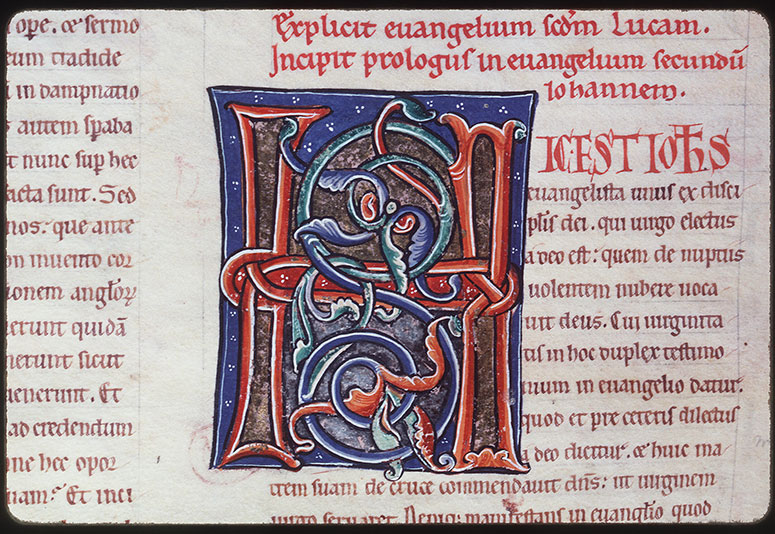 ope. & sermo
eum tradide
in dampnatio
autem sp̄aba
t nunc sup hec
facta sunt. Sed
nos: que ante
on invento cor
ionem angl̄oꝝ
nerunt quidā
nerunt sicut
uenerunt. Et
ad credendum
ne hec opor
nam: Et ini
Explicit evangelium scd̄m Lucam.
Incipit prologus in evangelium secundū
Iohannem.
H
IC EST IOH̄S
evangelista unus ex disci
pl̄is dei. qui virgo electus
a deo est: quem de nuptus
uolentem nubere uoca
uit deus. Cui uirginita
tis in hoc duplex testimo
nium in euangelio datur.
quod et pre ceteris dilectus
a deo dicitur. & huic ma
trem suam de cruce commendauit dn̄s: ut uirginem
uirgo seruaret. Deniq; manifestans in euanglıo quod